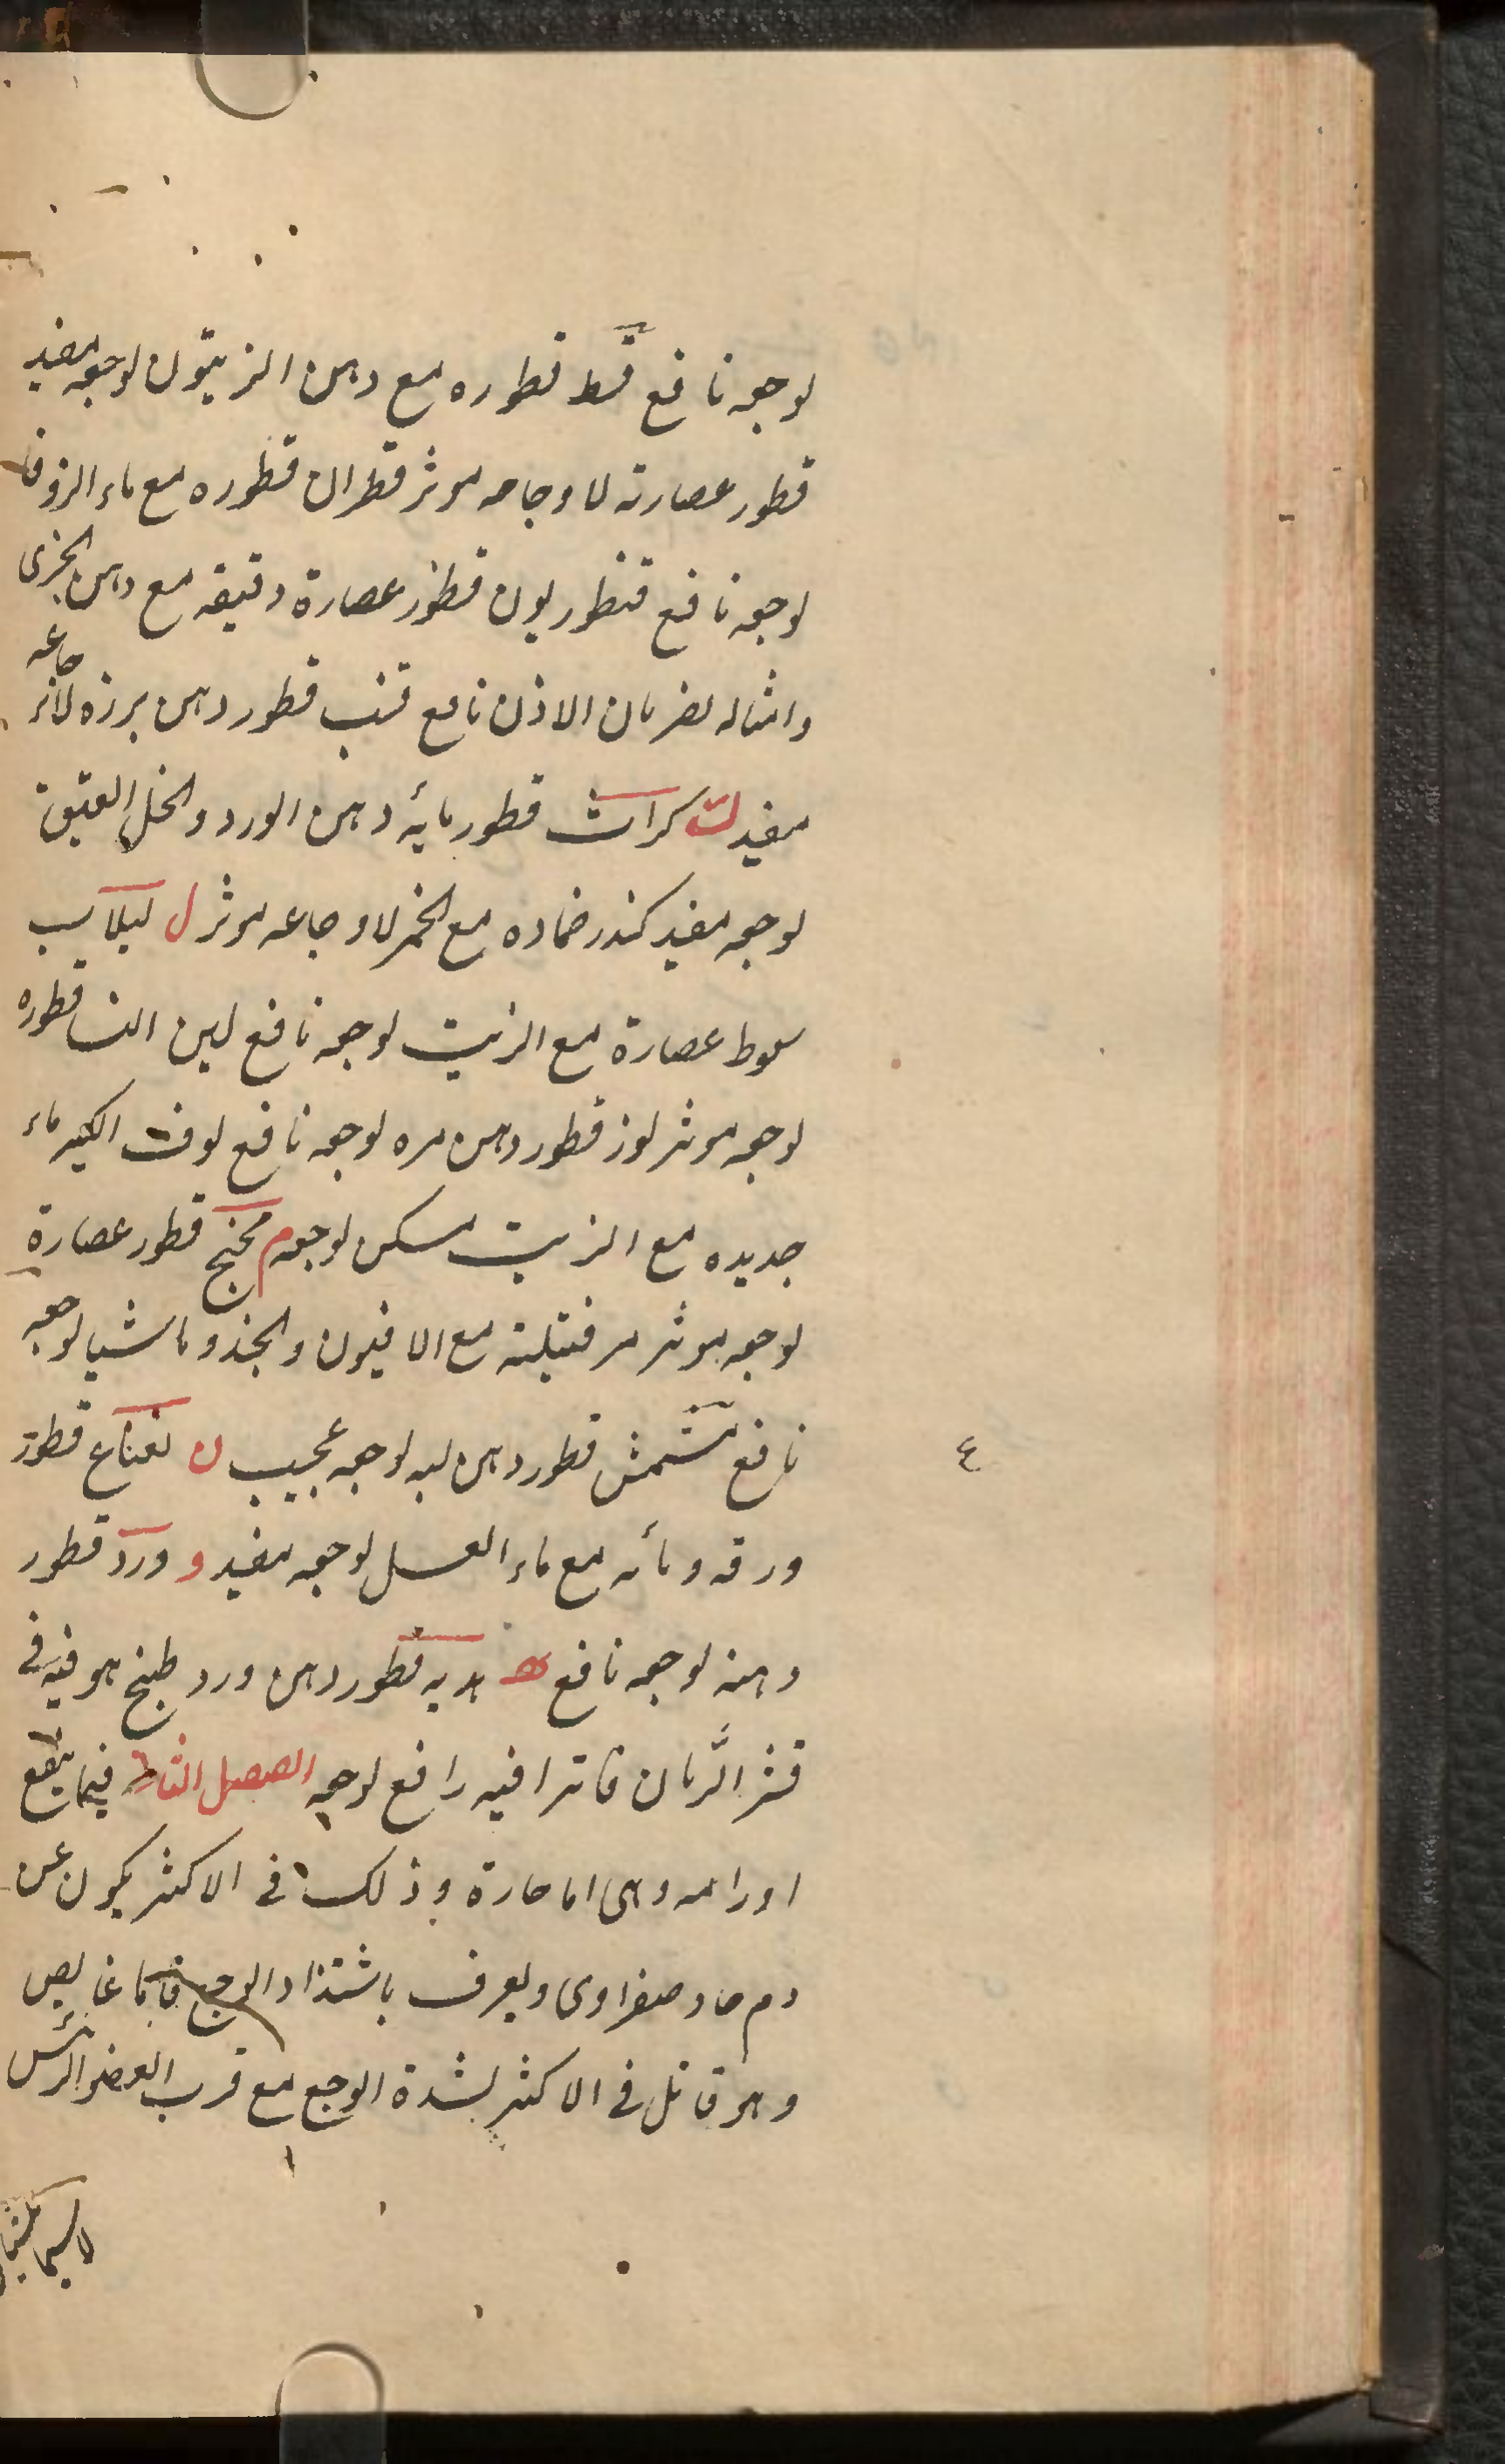 لوجعه نافع قسط قطوره مع دهن الزيتون لوجعه مفيد
قطور عصارته لاوجاعه موثر قطران قطوره مع ماء الزوفا
لوجعه نافع قنطوريون قطور عصارة دقيقه مع دهن الخيرى
وامثاله لضربان الاذن نافع قنب قطور دهن بزره لاوجاعه
مفيد ك كراث قطور مائه دهن الورد والخل العتيق
لوجعه مفيد كندر ضماده مع الخمر لاوجاعه موثر ل لبلاب
سعوط عصارة مع الزيت لوجعه نافع لبن النسا قطوره
لوجعه موثر لوز قطور دهن مره لوجعه نافع لوف الكبير ماء
جديده مع الزيت مسكن لوجعه م مخنج قطور عصارة
لوجعه موثر مر فتيلته مع الافيون والجندو ماشيا لوجعه
نافع مشمش قطور دهن لبه لوجعه عجيب ن نعناع قطور
ورقه ومائه مع ماء العسل لوجعه مفيد و ورد قطور
دهنه لوجعه نافع ه قطور دهن ورد طبخ هو فيه فى
قشر الرمان فاترا فيه رافع لوجعه الفصل الثالث فيما يقع
اورامه وهى اما حارة وذلك فى الاكثر يكون عن
دم حاد صفراوى ويعرف باشتداد الوجع غايص
وهو قاتل فى الاكثر لشدة الوجع مع قرب العضو الرئس
لاسيما
ع